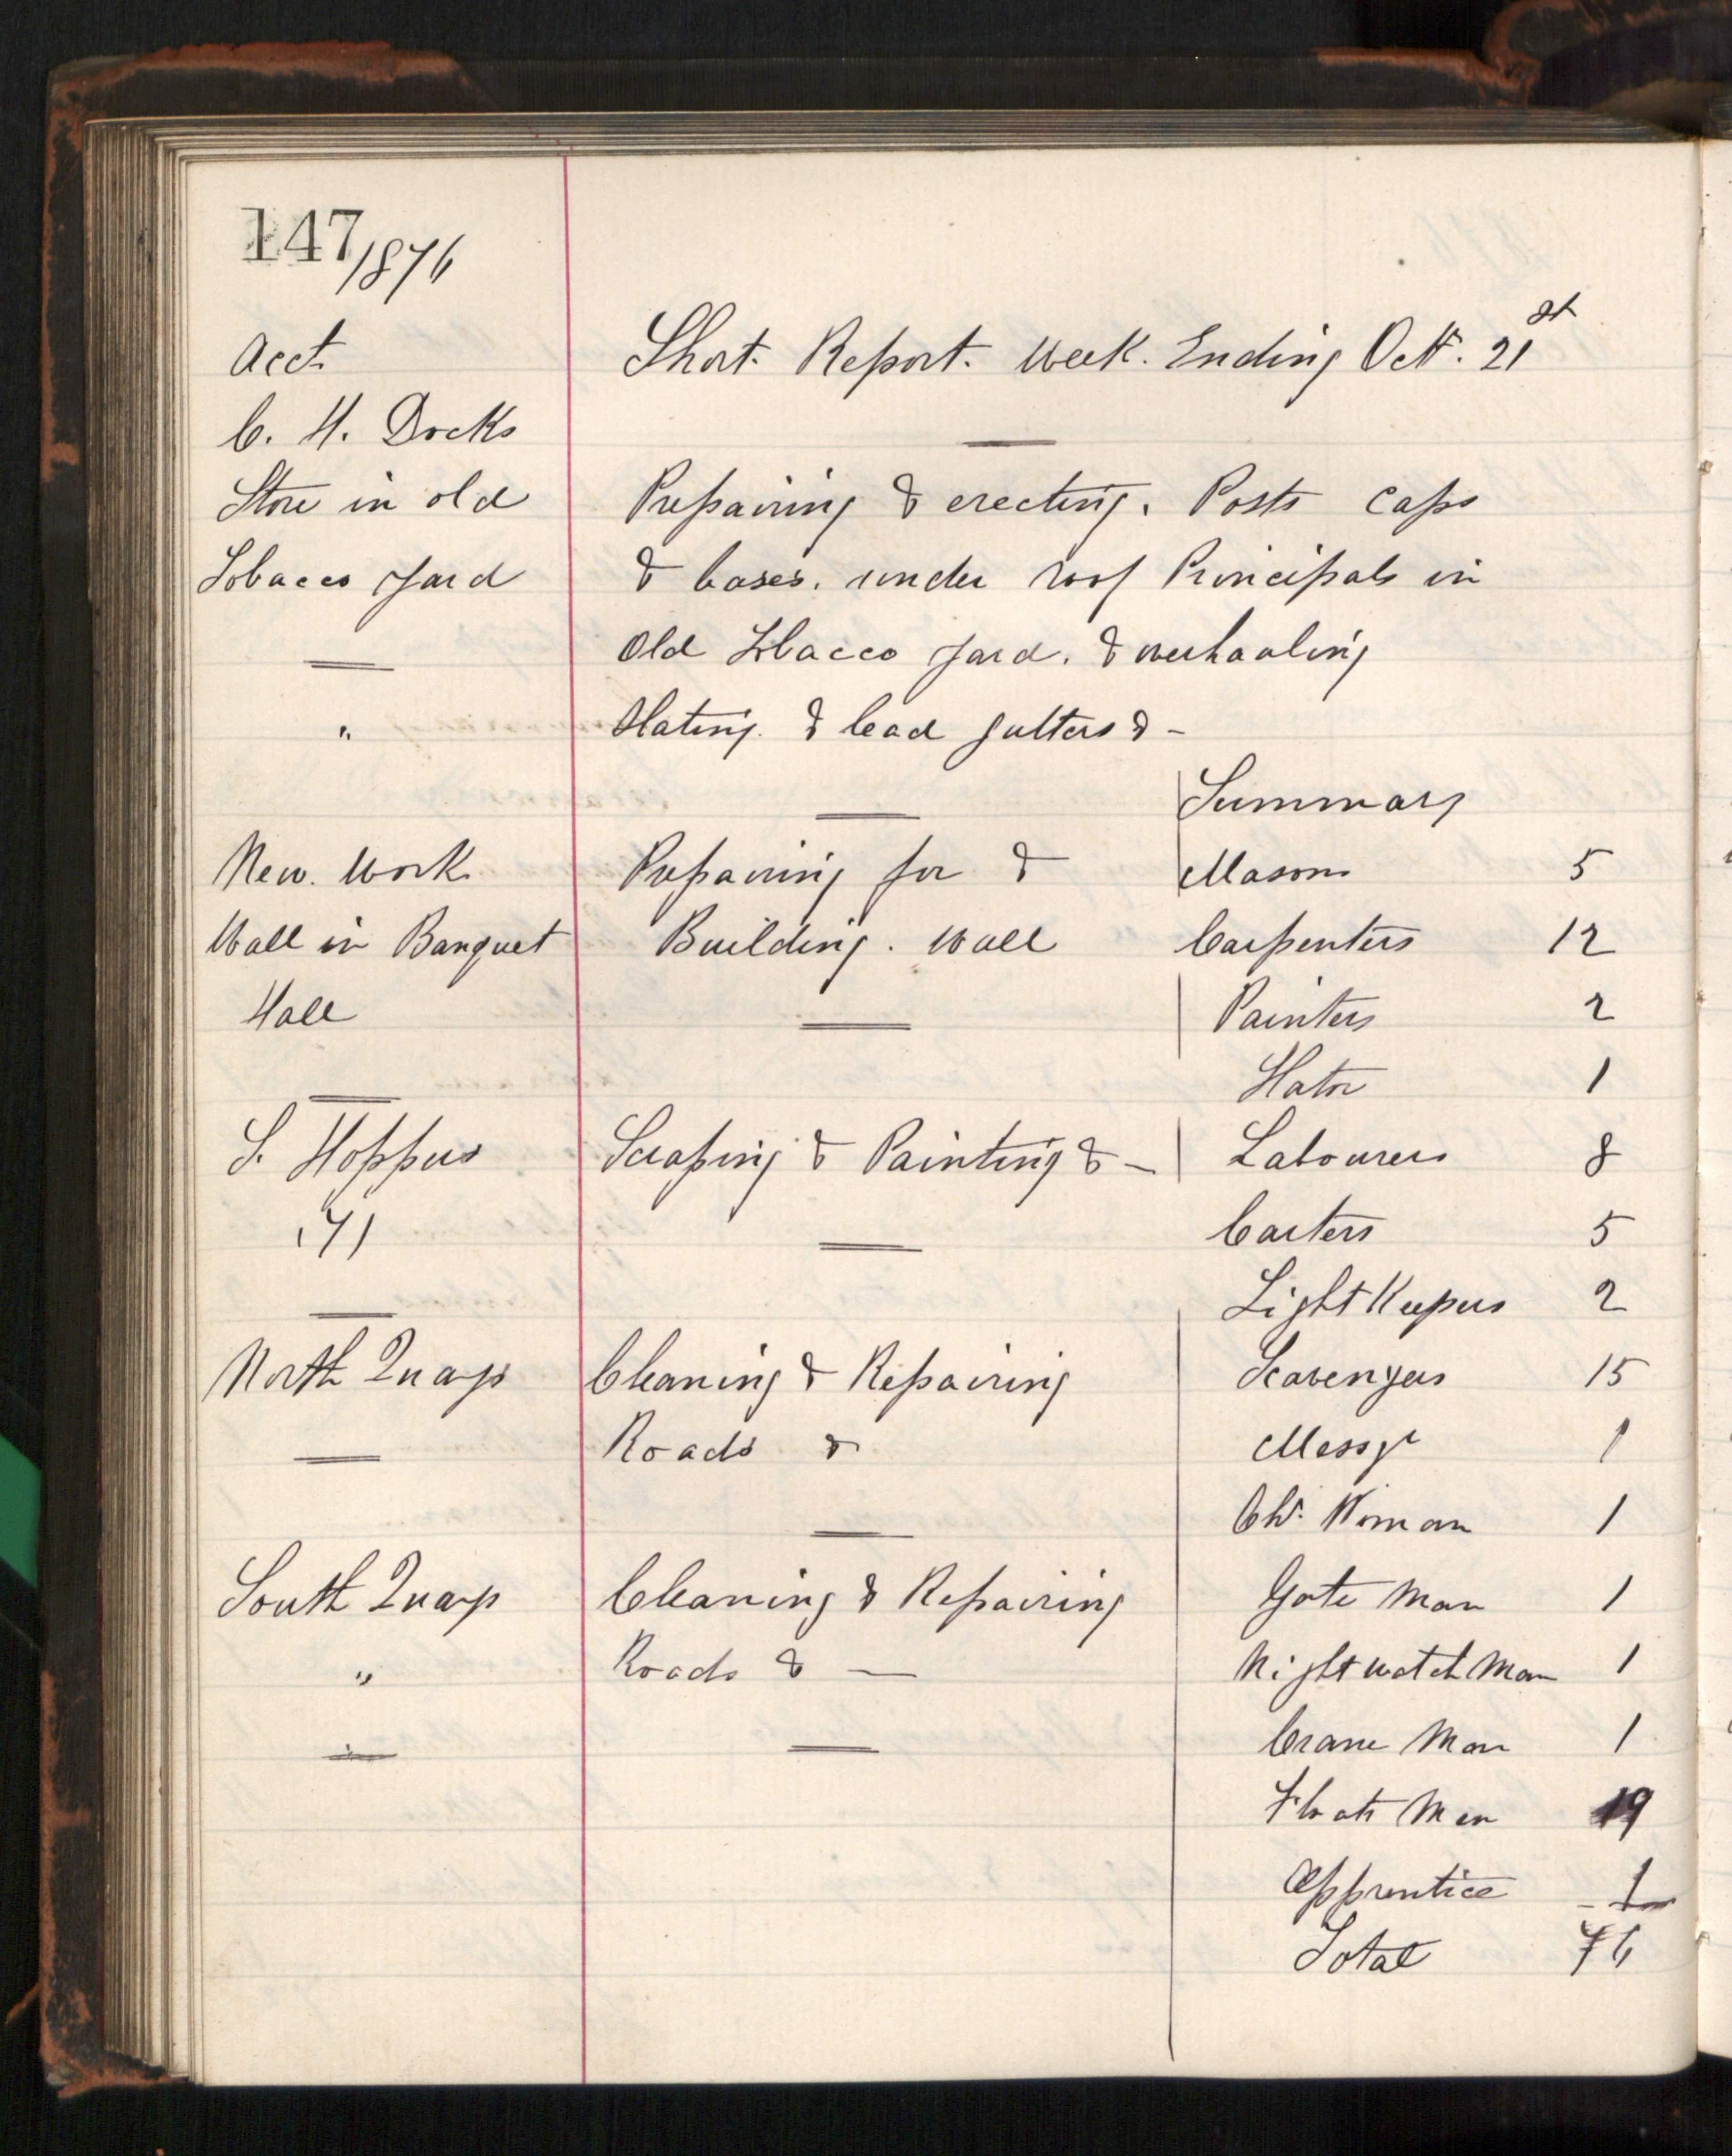 147/1876
Acct. Short Report. Week. Ending Oct. 21st
C. H. Docks
Store in old Preparing & erecting. Posts Caps
Tobacco Yard & bases. under roof Principals in
Old Tobacco Yard. & overhauling
" Slating. & lead gutters & -
Summary
New. Work Preparing for & Masons 5
Wall in Banquet Building. Wall Carpenters 12
Hall Painters 2
Slater 1
S. Hoppers Scraping & Painting & - Labourers 8
Carters 5
Light Keepers 2
North Quays Cleaning & Repairing Scavengers 15
Roads & Messgr 1
Ch. Woman 1
South Quays Cleaning & Repairing Gate Man 1
" Roads & — Night watch Man 1
Crane Man 1
Floats Men 19
Apprentice 1
Total 76